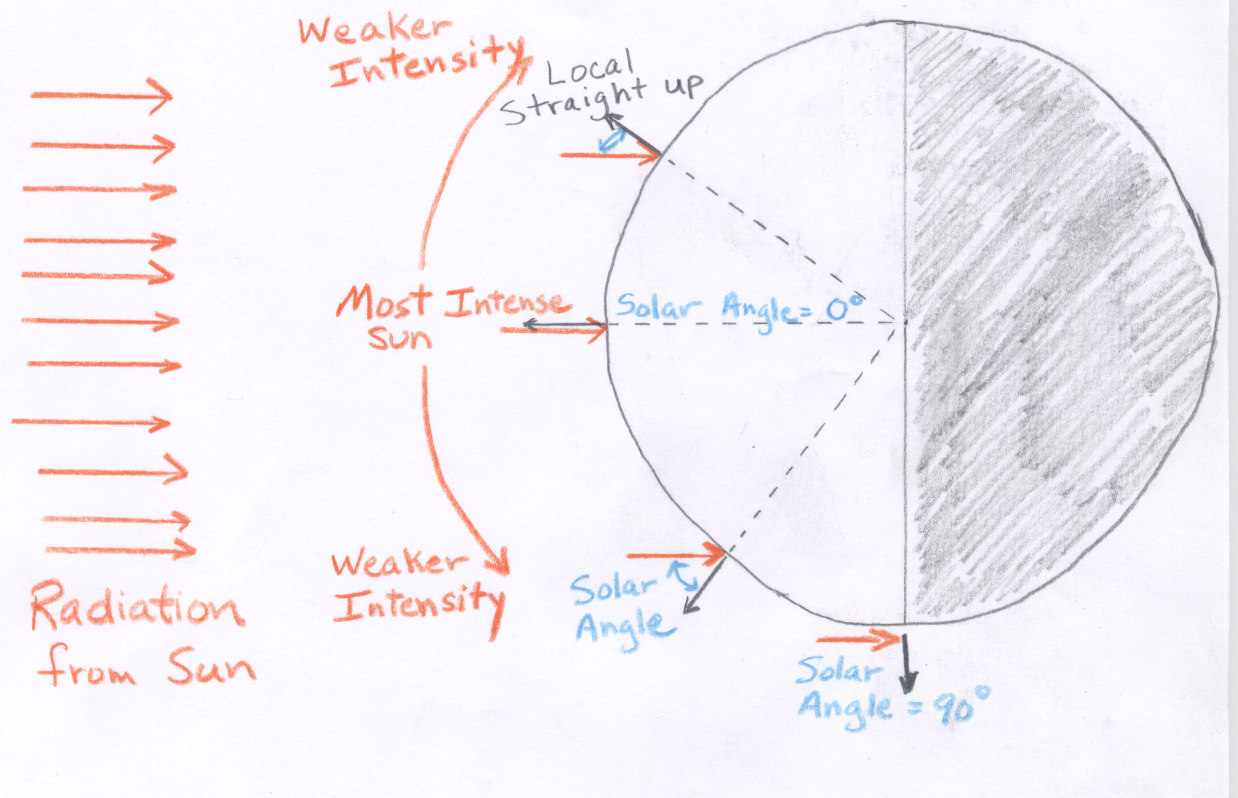 Weaker
Intensity
Local
Straight up
Most Intense
Sun
Solar Angle = 0°
Weaker
Intensity
Solar
Angle
Radiation
from Sun
Solar
Angle = 90°